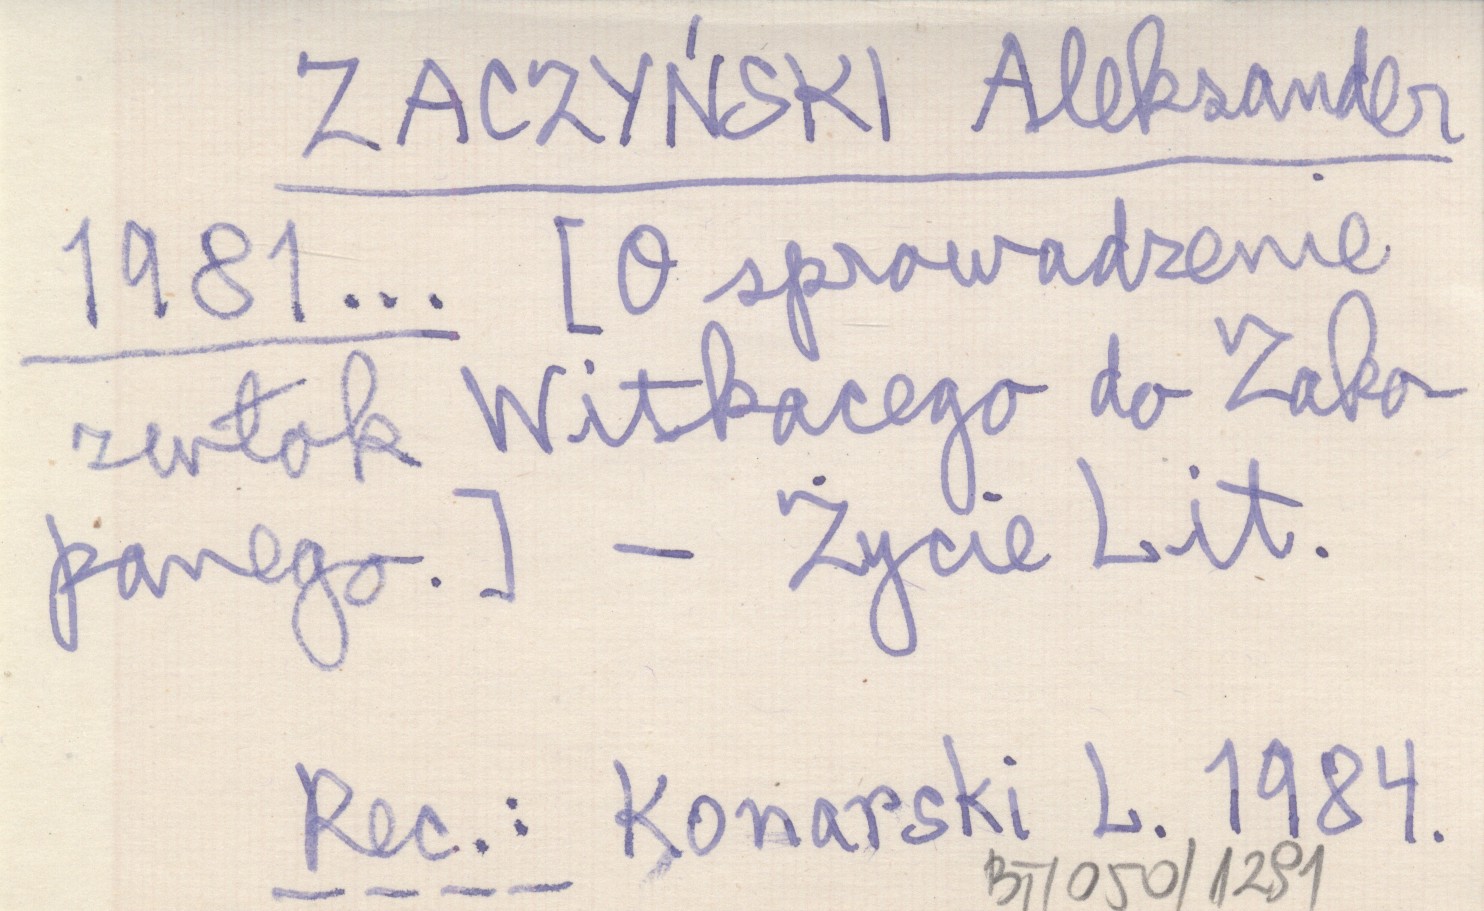 ZACZYŃSKI Aleksander
1981... [O sprowadzenie
zwłok Witkacego do Zako-
panego.] - Życie Lit.
Rec.: Konarski L. 1984.
BT/050/1291